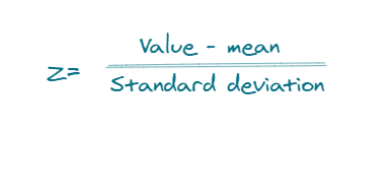 Value - mean
z=
Standard deviation